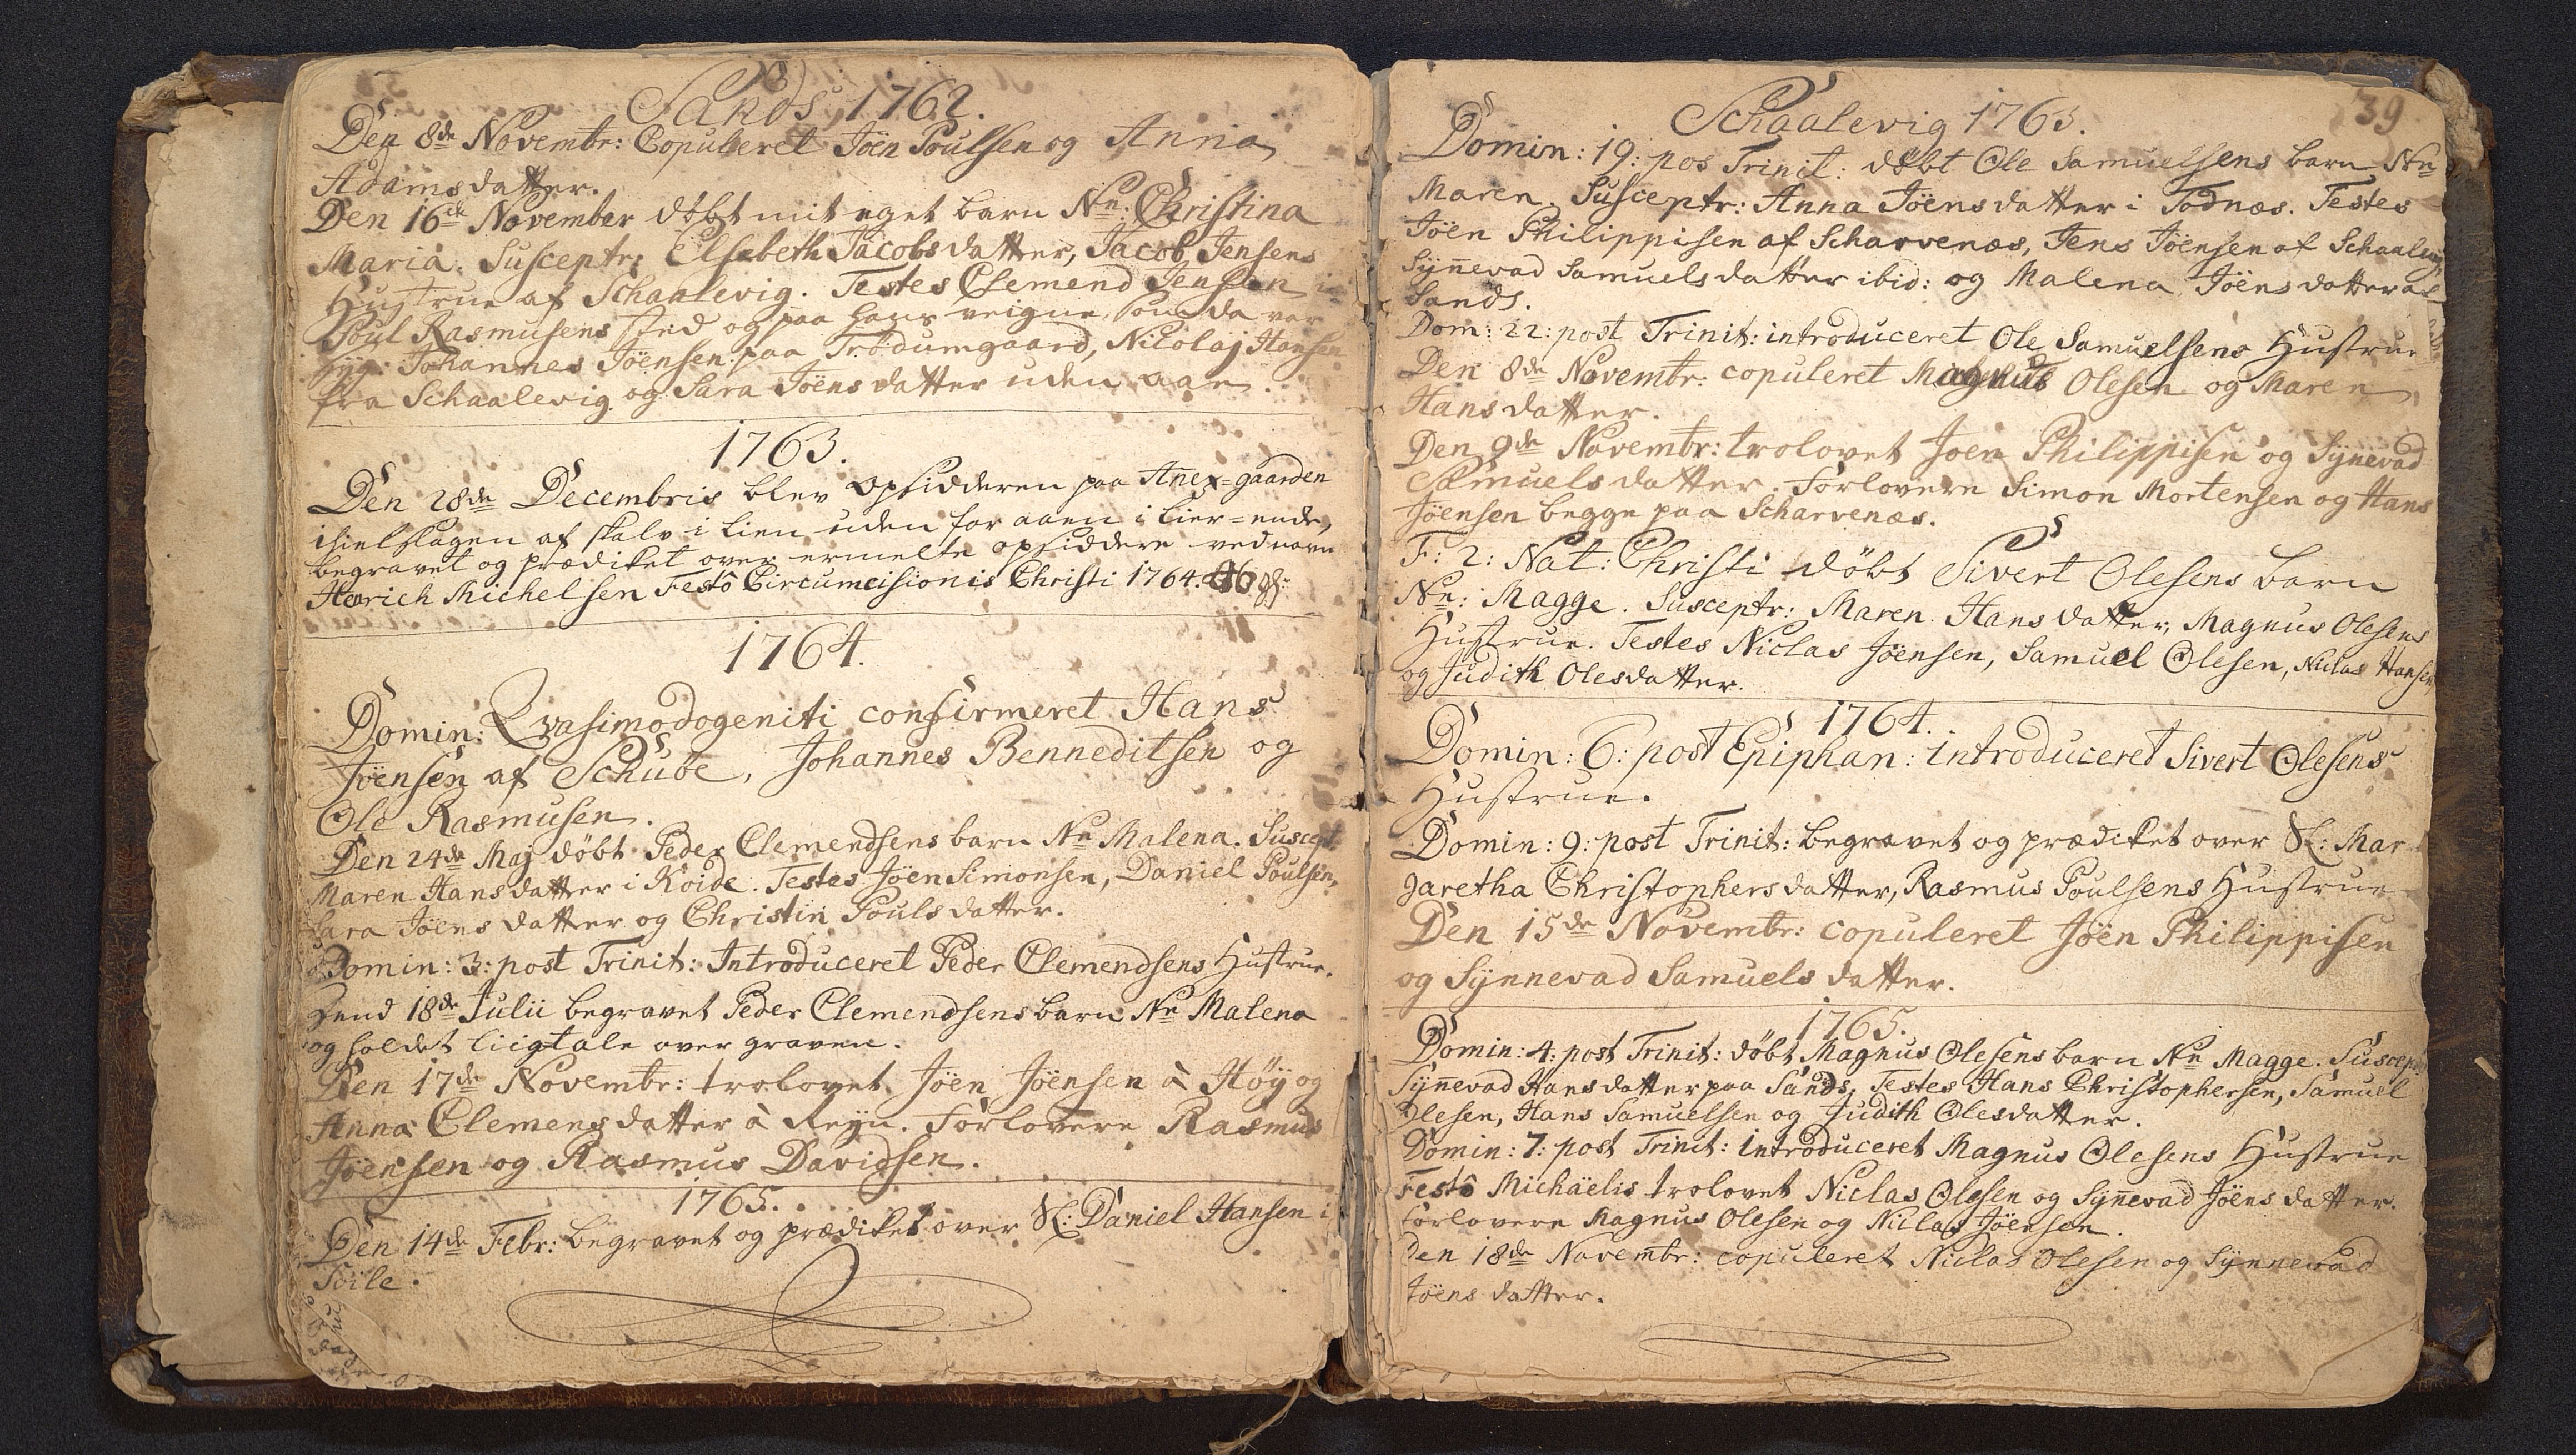 Sands 1762.
Den 8de Novembr: Copuleret Jöen Poulsen og Anna
Adamsdatter.
Den 16de November döbt mit eget barn Nn: Christina
Maria. Susceptr: Elsebeth Jacobsdatter, Jacob Jensens
Hustrue af Schaalevig. Testes Clemend Jensen i
Poul Rasmusens sted og paa hans veigne, som da var
syg: Johannes Jöensen paa Trödumgaard, Nicolaj Hansen
fra Schaalevig og Sara Jöensdatter uden aae.
1763.
Den 28de Decembris blev opsidderen paa Anex=gaarden
ihielslagen af skalv i lien uden for aaen i lier=ende,
begravet og prædiket over ermelte opsiddere ved navn
Henrich Michelsen Festô Circumcisionis Christi 1764.
1764.
Domin: Qvasimodogeniti confirmeret Hans
Jöensen af Schube, Johannes Benneditsen og
Ole Rasmusen.
Den 24de Maj döbt Peder Clemendsens barn Nn Malena. Suscept.
Maren Hansdatter i Koide. Testes Jöen Simonsen, Daniel Poulsen,
Sara Jöens datter og Christin Pouls datter.
Domin: 3: post Trinit: Introduceret Peder Clemendsens Hustrue.
Dend 18de Julii begravet Peder Clemendsens barn Nn Malena
og holdet liigtale over graven.
Den 17de Novembr: trolovet Jöen Jöensen à Höÿ og
Anna Clemensdatter à Reyn. Forlovere Rasmus
Jöensen og Rasmus Davidsen.
1765.
Den 14de Febr: begravet og prædiket over Sl: Daniel Hansen i
Söile.
39
Schaalevig 1763.
Domin: 19: pos Trinit: döbt Ole Samuelsens barn Nn
Maren. Susceptr: Anna Jöensdatter i Todnæs. Testes
Jöen Philippisen af Scharvenæs, Jens Jöensen af Schaalevig
Sÿnnevad Samuelsdatter ibid: og Malena Jöensdatter af
Sands.
Dom: 22: post Trinit: introduceret Ole Samuelsens Hustrue
Den 8de Novembr: copuleret Magnus Olesen og Maren
Hansdatter.
Den 9de Novembr: trolovet Joen Philippisen og Sÿnevad
Samuelsdatter. Forlovere Simon Mortensen og Hans
Jöensen begge paa Scharvenæs.
F: 2: Nat: Christi döbt Sivert Olesens barn
Nn: Magge. Susceptr: Maren Hansdatter, Magnus Olesens
Hustrue. Testes Niclas Jöensen, Samuel Olesen, Niclas Hansen
og Judith Olesdatter.
1764.
Domin: 6: post Epiphan: introduceret Sivert Olesens
Hustrue.
Domin: 9: post Trinit: begravet og prædiket over Sl: Mar
garetha Christophersdatter, Rasmus Poulsens Hustrue
Den 15de Novembr: copuleret Jöen Philippisen
og Sÿnnevad Samuels datter.
1765.
Domin: 4: post Trinit: döbt Magnus Olesens barn Nn Magge. Suscep
Sÿnnevad Hansdatter paa Sands, Testes Hans Christophersen, Samuel
Olesen, Hans Samuelsen og Judith Olesdatter.
Domin: 7: post Trinit: introduceret Magnus Olesens Hustrue
Festô Michaëlis trolovet Niclas Olesen og Sÿnnevad Jöens datter.
Forlovere Magnus Olesen og Niclas Jöensen.
Den 18de Novembr: copuleret Niclas Olesen og Sÿnnevad
Jöens datter.